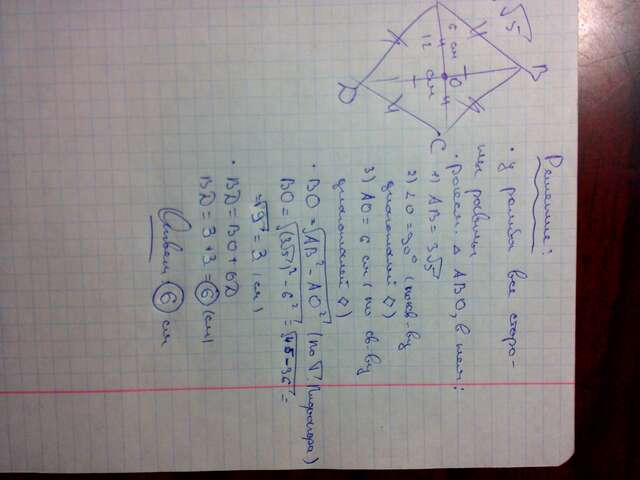 √5
6 см
12 см
B
O
D
C
Решение:
• У ромба все сторо-
ны равны
• Рассм. △ ABO, в нём:
1) AB = 3√5
2) ∠O = 90° (по св-ву
диагоналей ◊)
3) AO = 6 см (по св-ву
диагоналей ◊)
• BO = √AB² - AO² (по т. Пифагора)
BO = √(3√5)² - 6² = √45 - 36 =
= √9 = 3 (см)
• BD = BO + OD
BD = 3 + 3 = 6 (см)
Ответ: 6 см